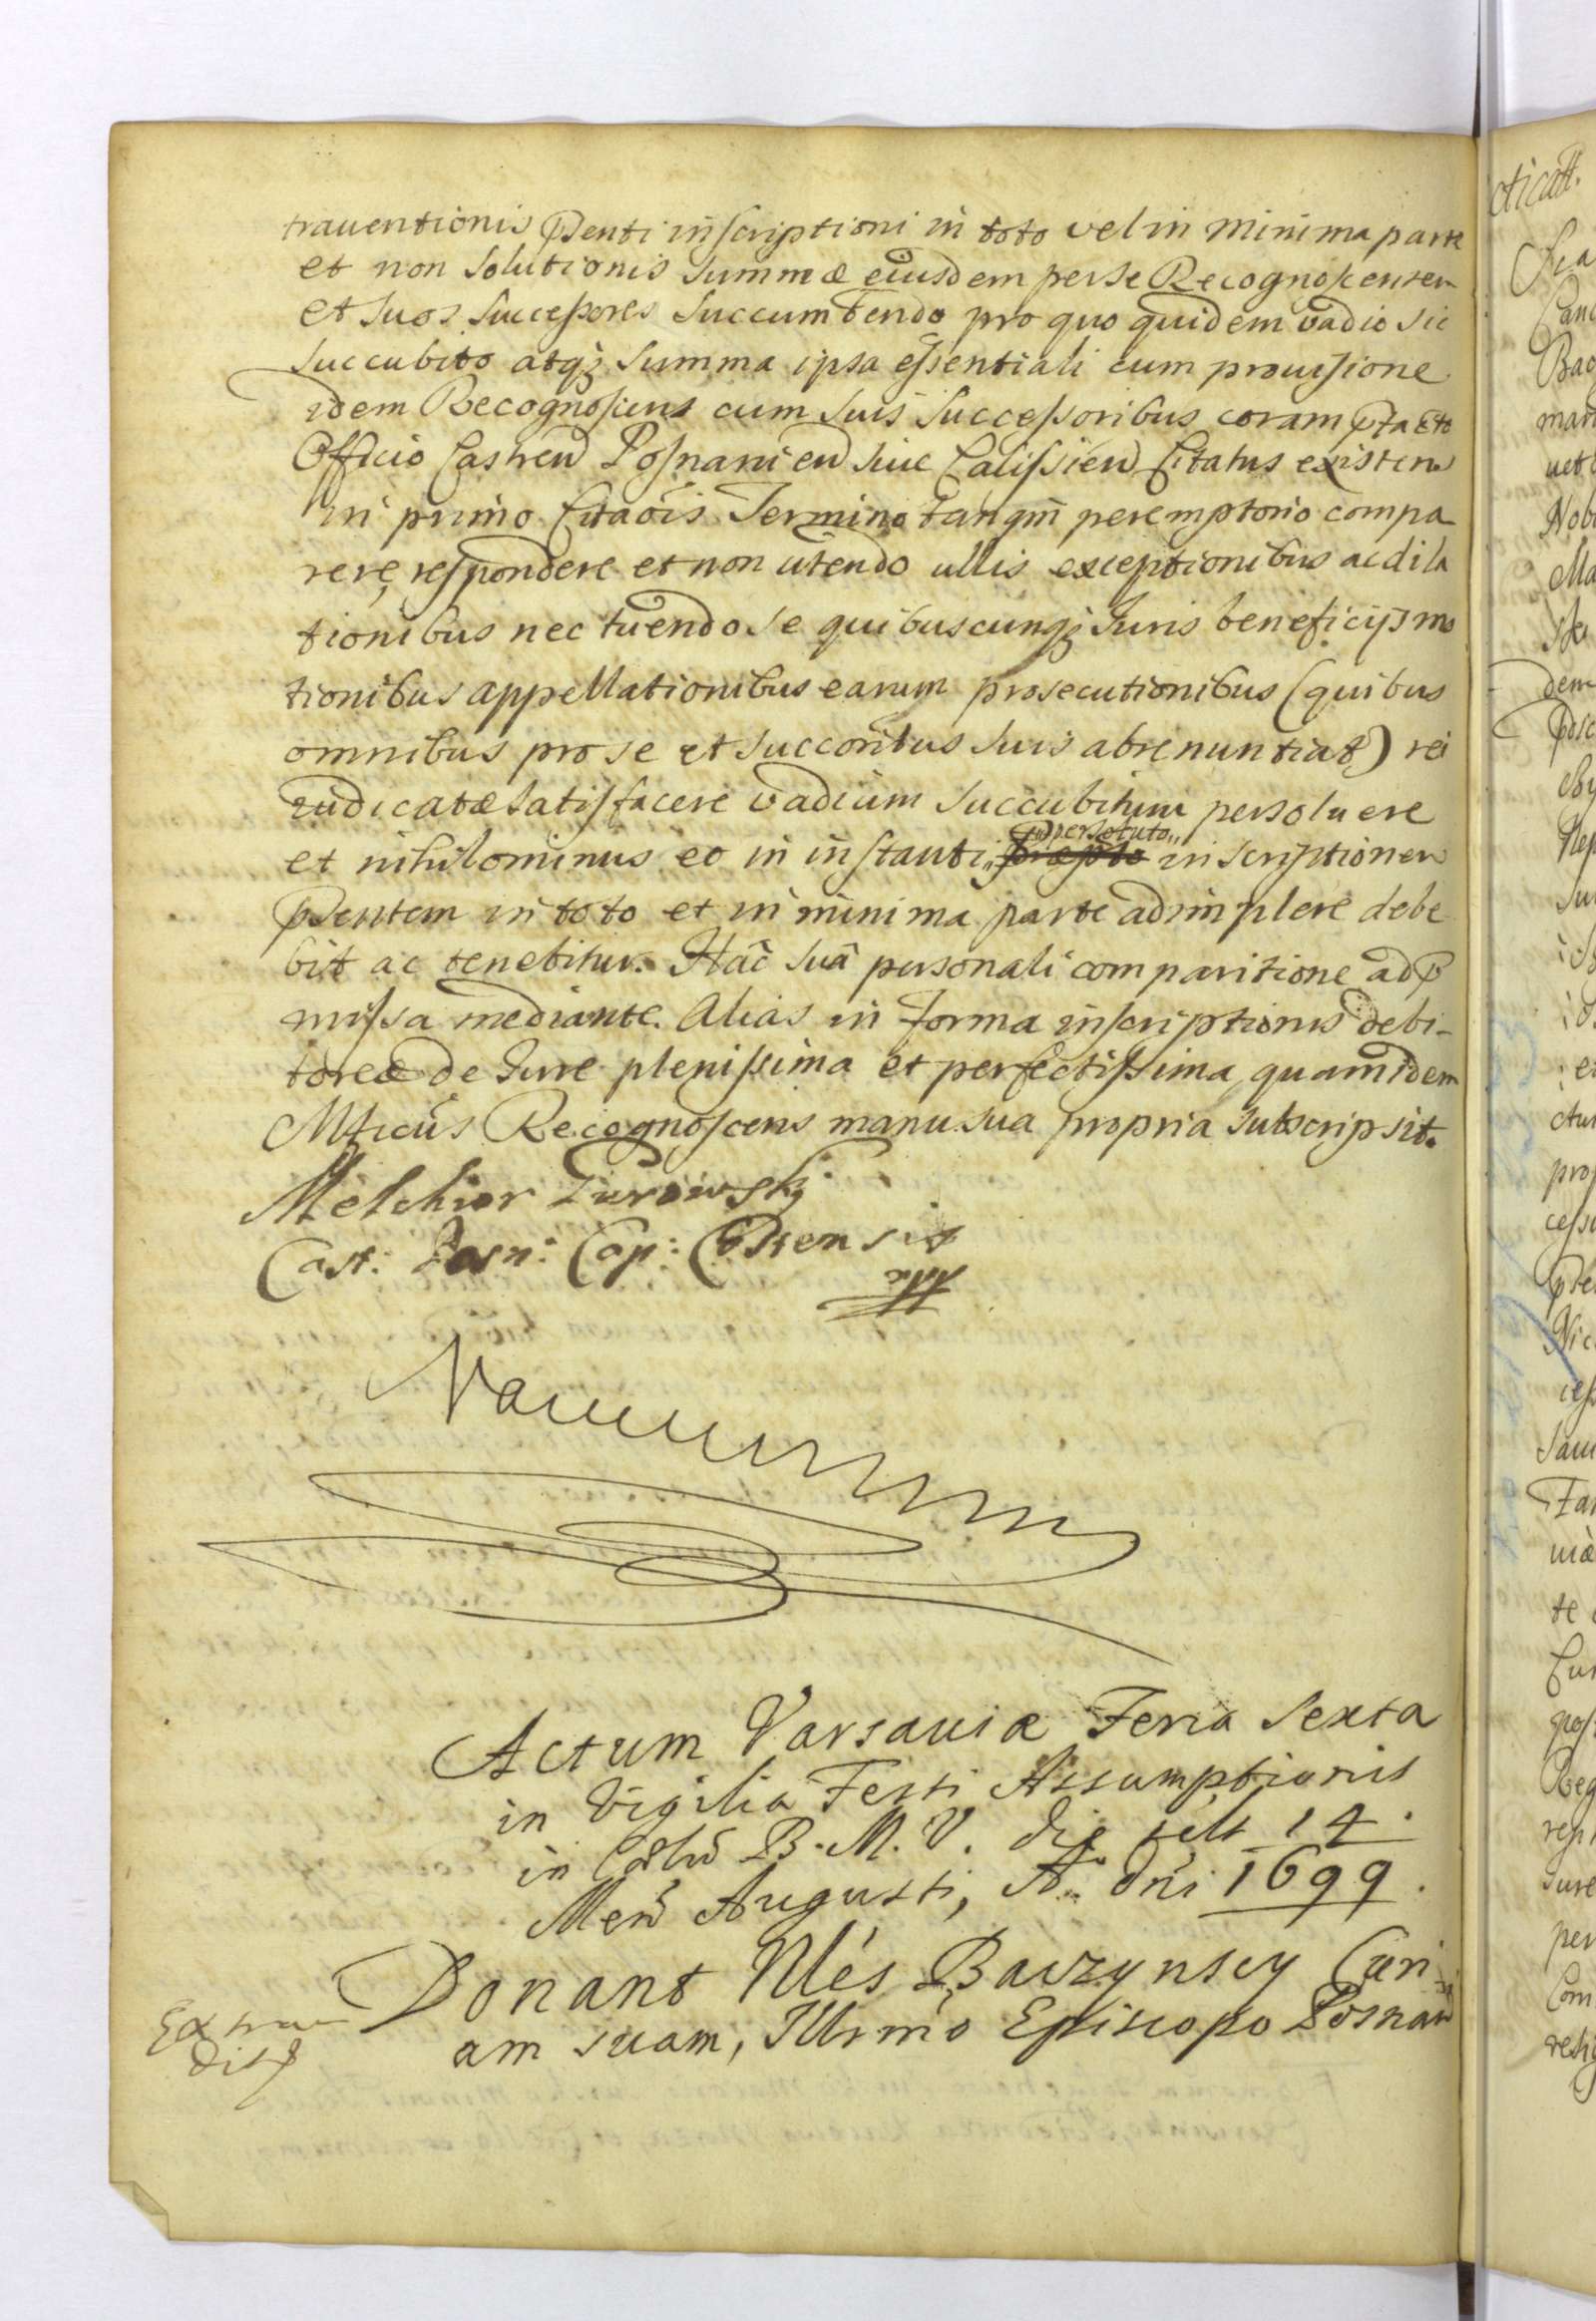 trauentionis Psenti inscriptioni in toto vel in minima parte
et non solutionis summæ eiusdem per se Recognoscentem
et suos successores succumbendo pro quo quidem vadio sic
succubito atq; summa ipsa essentiali cum prouisione
idem Recognoscens cum suis successoribus coram
Officio Castren Posnanien siue Calissien Citatus existens
in primo Citaõis Termino tanqm̃ peremptorio compa
rere, respondere et non utendo ullis exceptionibus ac dila
tionibus nec tuendo se quibuscunq; Iuris beneficijs mo
tionibus appellationibus earum prosecutionibus (quibus
omnibus pro se et succoribus suis abrenuntiat) rei
iudicatæ satisfacere vadium succubitum persoluere
et nihilominus eo in instanti persoluto inscriptionem
Psentem in toto et in minima parte adimplere debe
bit ac tenebitur. Hac sua personali comparitione ad P
missa mediante. Alias in forma inscriptionis debi-
toreæ de Iure plenissima et perfectissima, quam idem
Mficus Recognoscens manu sua propria subscripsit.
Melchior Gurowsky
Cast: Posn: Cap:
Actum Varsauiæ Feria Sexta
in Vigilia Festi Assumptionis
in Cœlu B. M. V. die scilt 14.
Men Augusti, A. Dni 1699.
Donant Curi
am suam, Illrmo Episcopo Posnan